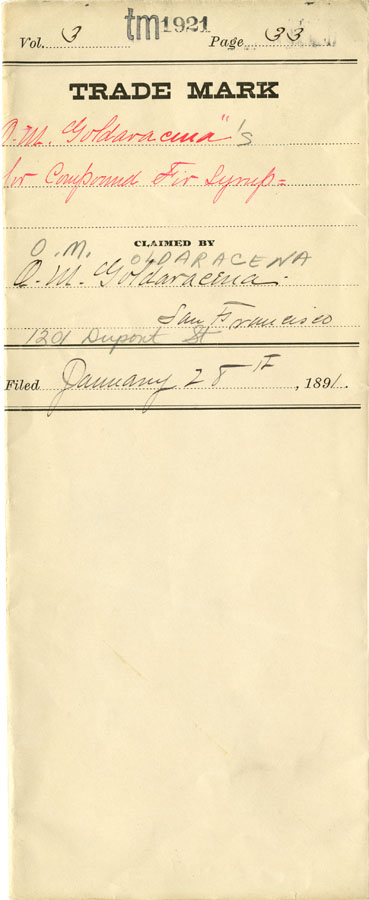 tm 1921
Vol. 3 Page 33
TRADE MARK
O. M. Goldaracena"'s
for Compound Fir Syrup=
CLAIMED BY
O. M. OLDARACENA
O. M. Goldaracena.
San Francisco
1201 Dupont St
Filed January 28th, 1891.